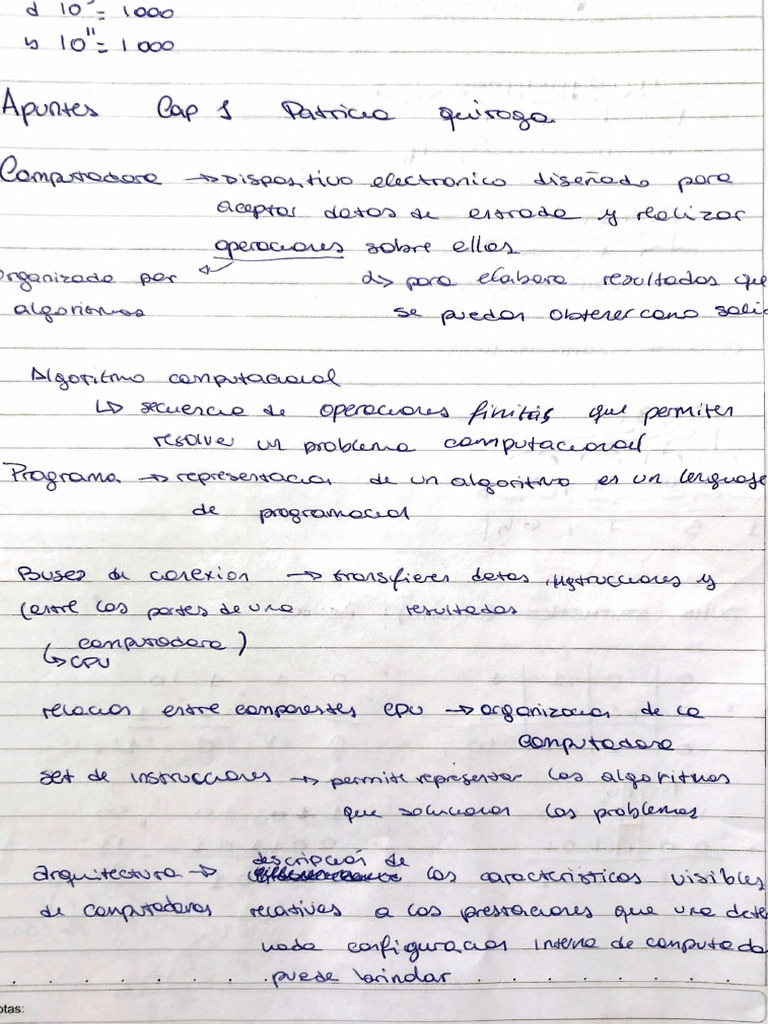 d 10³ = 1000
b 10¹¹ = 1000
Apuntes Cap 1 Patricia Quiroga
Computadora → Dispositivo electronico diseñado para
aceptar datos de entrada y realizar
operaciones sobre ellos
organizada por ↳ para elabora resultados que
algoritmos se puedan obtener como salid
Algoritmo computacional
↳ secuencia de operaciones finitas que permiten
resolver un problema computacional
Programa → representacion de un algoritmo es un lenguaje
de programacion
Buses de conexion → transfieren datos, instrucciones y
(entre las partes de una resultados
computadora)
↳ CPU
relacion entre componentes CPU → organizacion de la
computadora
set de instrucciones → permite representar los algoritmos
que solucionan los problemas
arquitectura → descripcion de las caracteristicas visibles
de computadoras relativas a las prestaciones que una dete
nada configuracion interna de computado
puede brindar
otas: